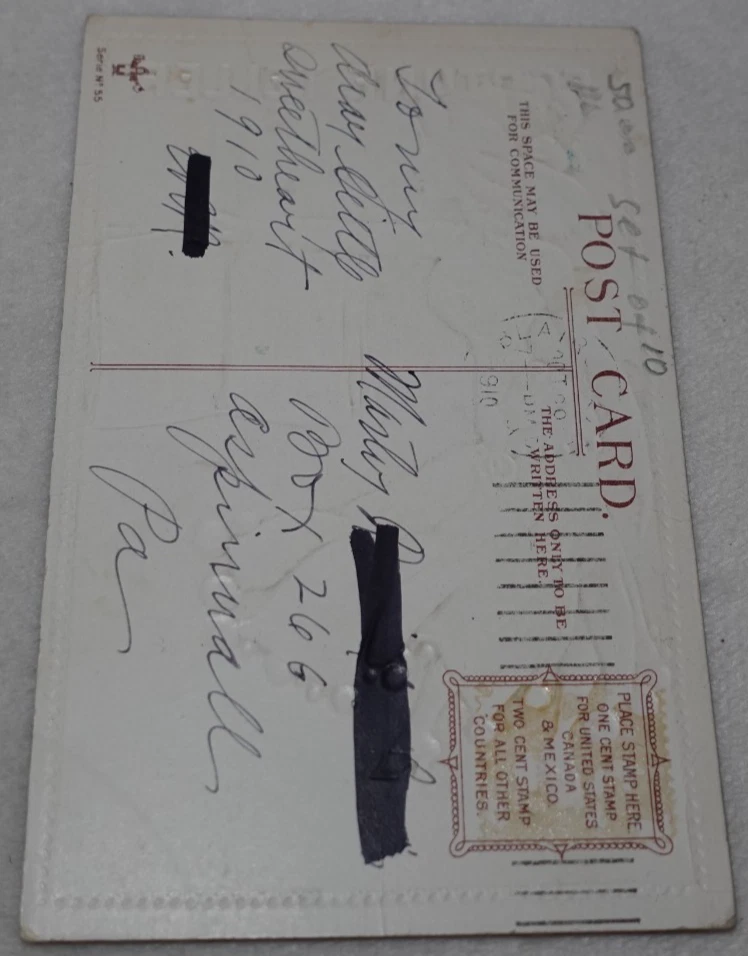 50 ea set of 10
POST CARD.
THIS SPACE MAY BE USED
FOR COMMUNICATION
THE ADDRESS ONLY TO BE
WRITTEN HERE.
PLACE STAMP HERE
ONE CENT STAMP
FOR UNITED STATES
CANADA
& MEXICO.
TWO CENT STAMP
FOR ALL OTHER
COUNTRIES.
910
To my
dear little
Sweetheart
1910
Box 266
Aspinwall
Pa
Serie Nº 55